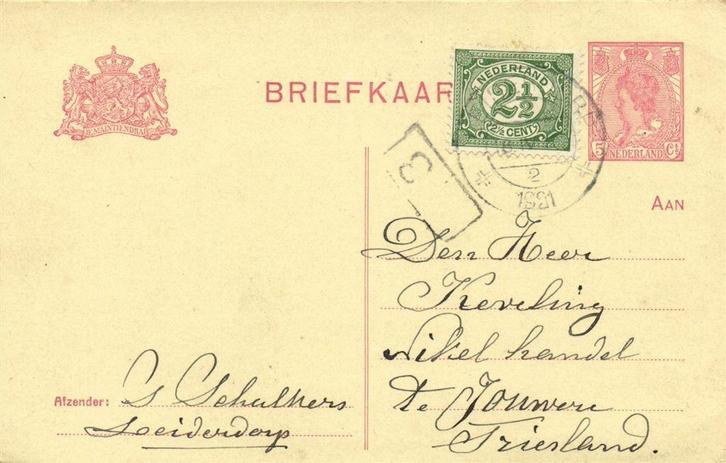 JE MAINTIENDRAI
BRIEFKAAR
NEDERLAND
2½
2½ CENT
5 Ct
NEDERLAND
2
1921
3
AAN
Den Heer
Keveling
Nikel handel
te Jouwere
Friesland.
Afzender: S Schulkers
Leiderdorp